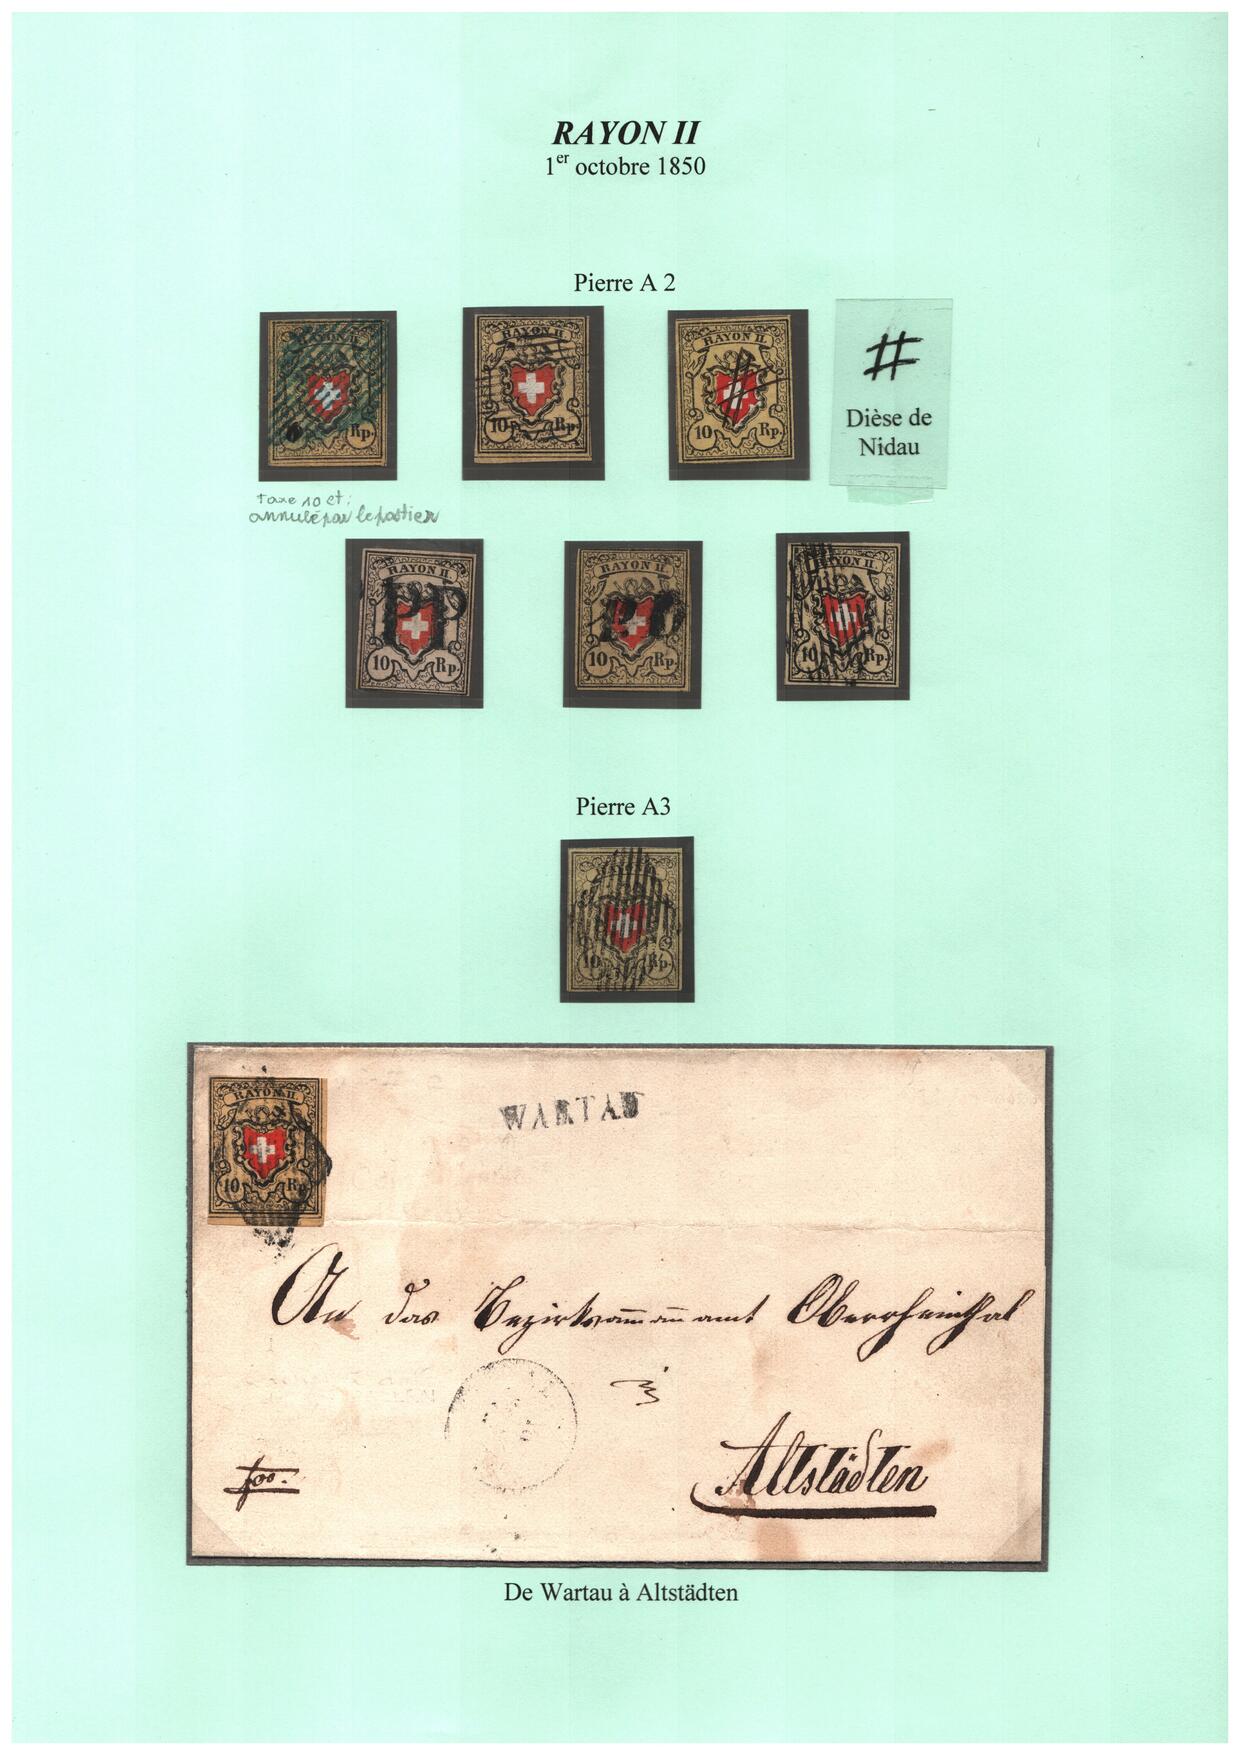 RAYON II
1er octobre 1850
Pierre A 2
RAYON II.
Rp.
RAYON II
10 Rp.
RAYON II.
10 Rp.
#
Dièse de
Nidau
taxe 10 ct:
annulé par le postier
RAYON II.
PP
10 Rp.
RAYON II.
10 Rp.
RAYON II.
10 Rp.
Pierre A3
10 Rp.
RAYON II.
10 Rp.
WARTAU
An das Bezirksammannamt Oberrheinthal
in
Altstädten
fco.
De Wartau à Altstädten